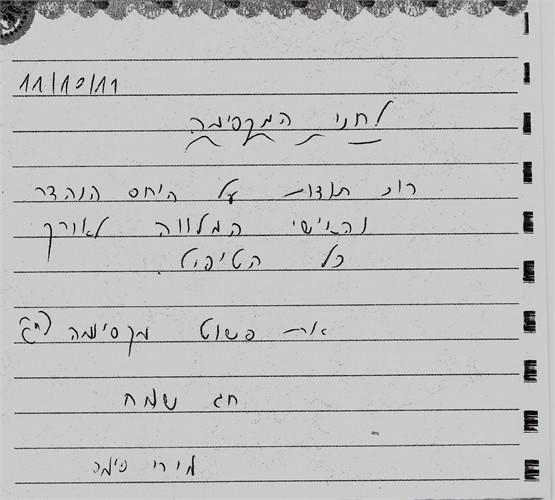 11/10/11
לחני המקסימה
רוב תודות על היחס הנהדר
והאישי המלווה לאורך
כל הטיפול
את פשוט מקסימה
חג שמח
מירי